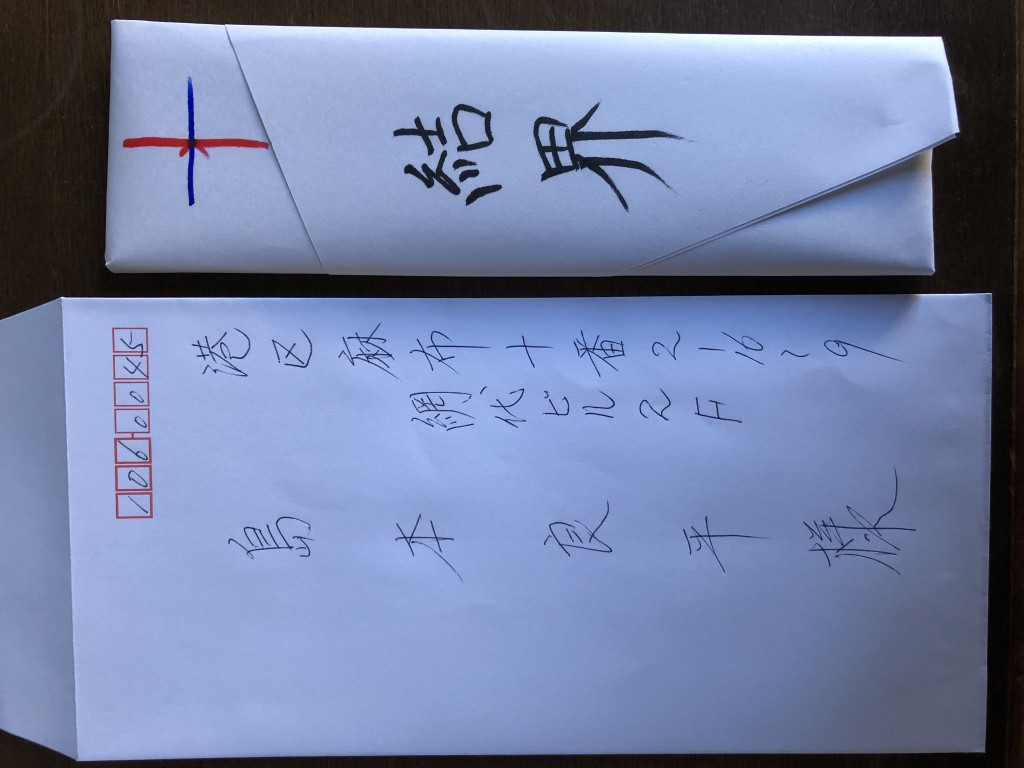 結界
1060045
港区麻布十番2-16-9
網代ビル2F
島本良平様